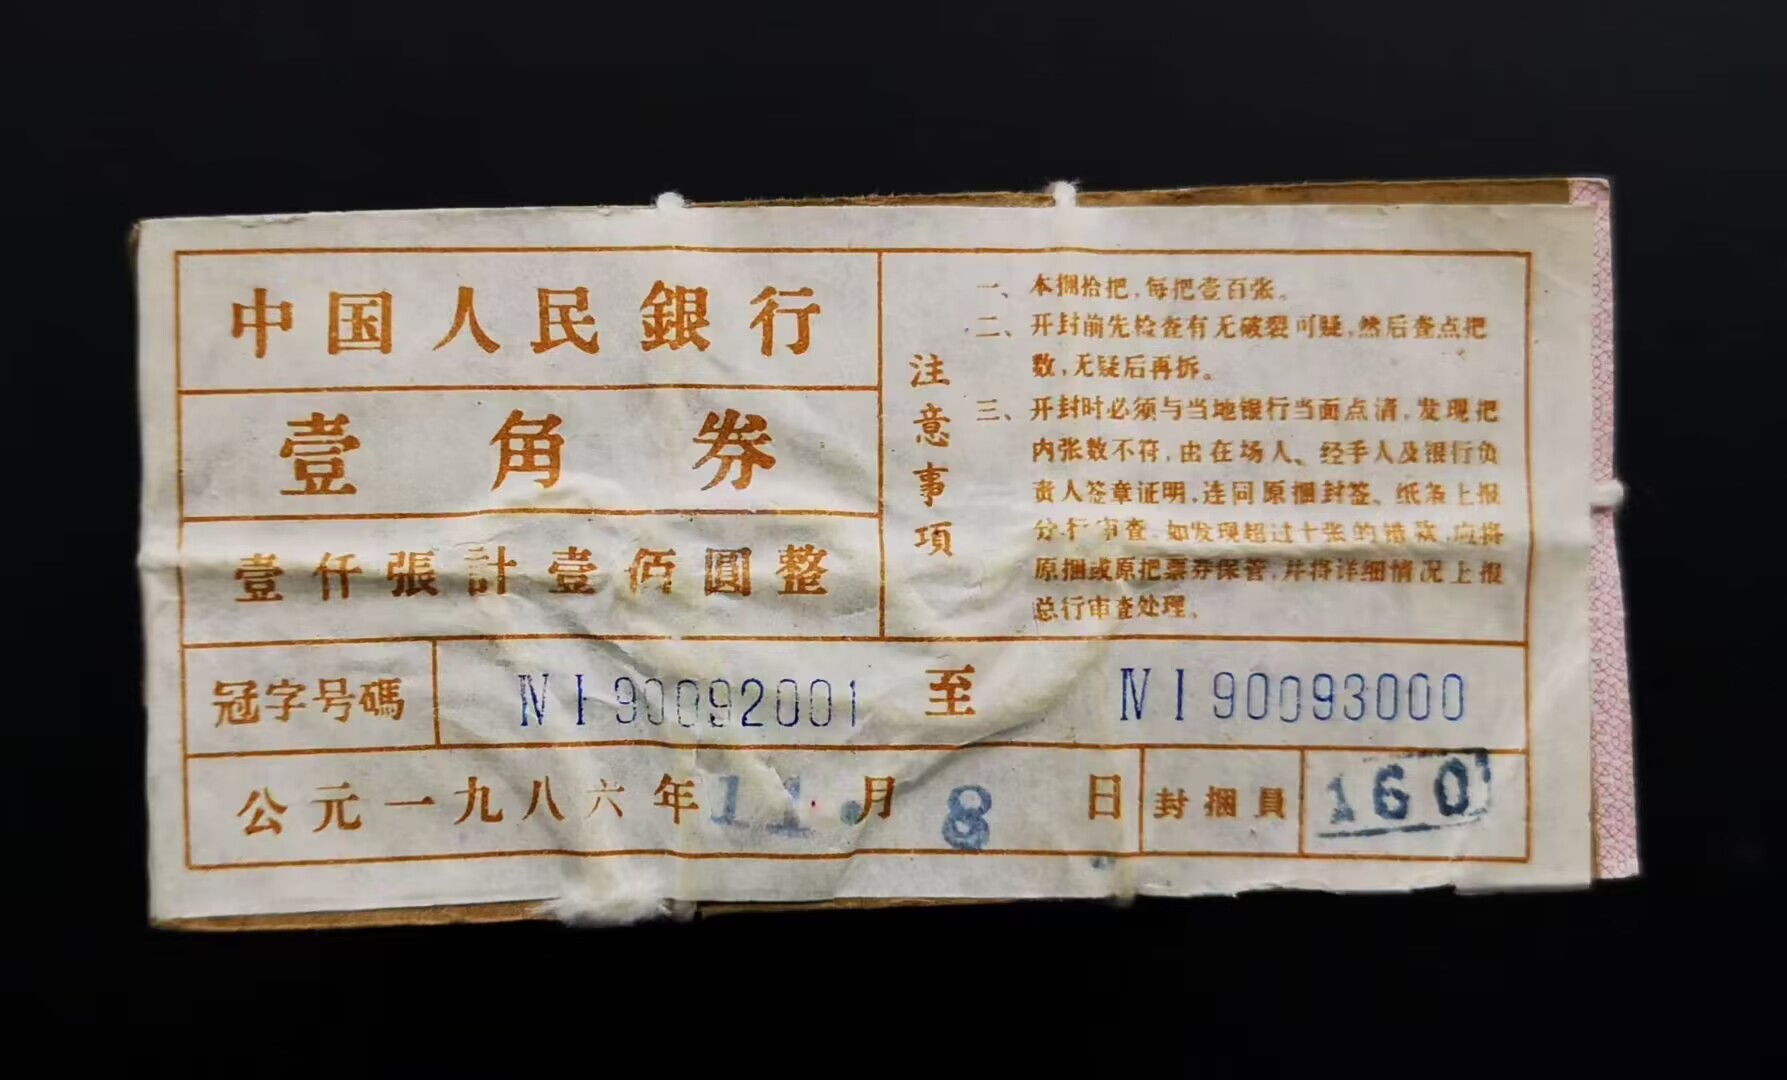 中国人民銀行
壹角券
壹仟張計壹佰圓整
注意事項
一、本捆拾把，每把壹百张。
二、开封前先检查有无破裂可疑，然后查点把
数，无疑后再拆。
三、开封时必须与当地银行当面点清，发现把
内张数不符，由在场人、经手人及银行负
责人签章证明，连同原捆封签、纸条上报
分行审查，如发现超过十张的错款，应将
原捆或原把票券保管，并将详细情况上报
总行审查处理。
冠字号碼 ⅣⅠ90092001 至 ⅣⅠ90093000
公元一九八六年11.月8日 封捆員 160